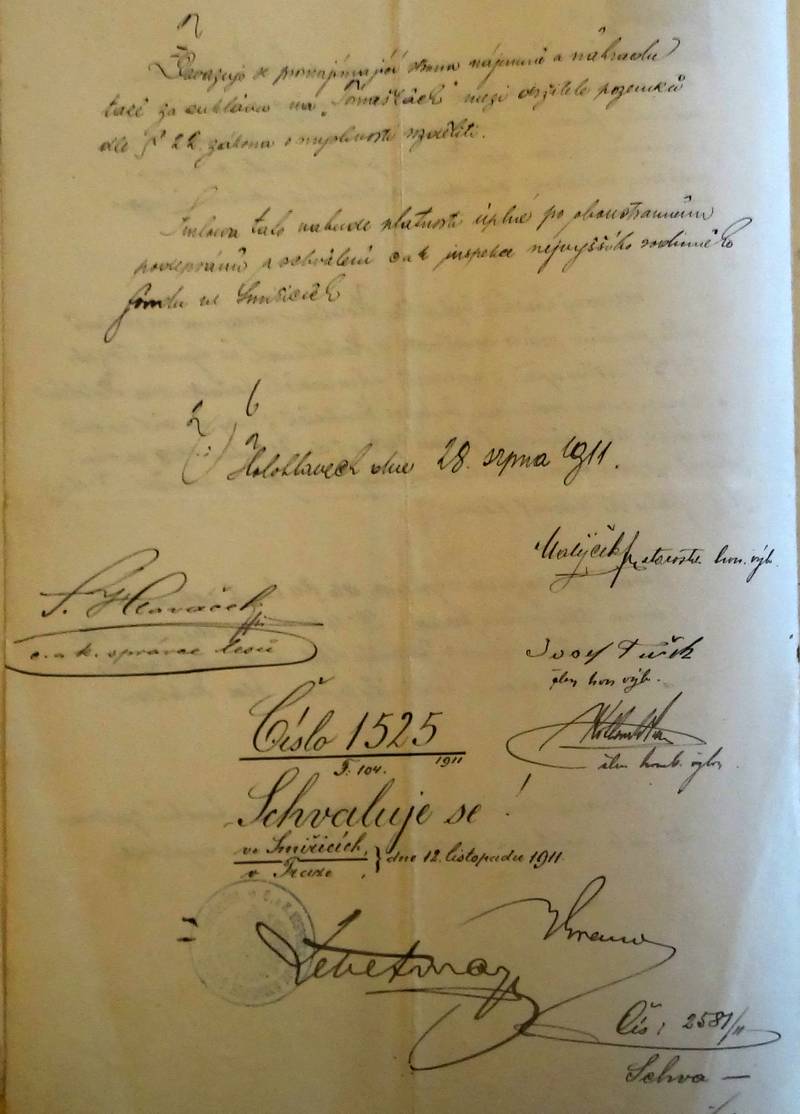 Zavazuje se pronajímající strana nájemné a náhradu
také za enklávu na „Tomáškách" mezi držitele pozemků
dle § 22. zákona o myslivosti rozděliti.
Smlouva tato nabude platnosti úplné po oboustranném
podepsání a schválení c. a k. inspekce nejvyššího rodinného
fondu ve Smiřicích
V Holohlavech dne 28. srpna 1911.
starosta hon. výb.
Hlaváček
c. a k. správce lesů
Josef Turek
člen hon. výb.
Číslo 1525
F. 104. 1911
člen honeb. výbor
Schvaluje se!
ve Smiřicích,
v Praze, } dne 12. listopadu 1911.
Čís: 2581/11
Schva —